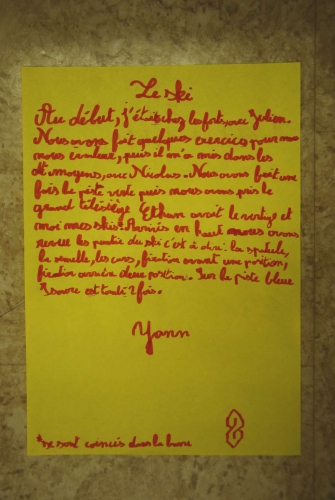 Le ski
Au début, j'étais chez les forts, avec Julien.
Nous avons fait quelques exercices pour nous
nous évaluer, puis il m'a mis dans les
moyens, avec Nicolas. Nous avons fait une
fois la piste verte puis nous avons pris le
grand télésiège. Ethan avait le vertige et
moi mes skis. Arrivés en haut nous avons
les partie du ski c'est à dire: la spatule,
la semelle, les cars, fixation avant une position,
fixation arrière deux position. Sur la piste bleue
est tombé 2 fois.
Yann
*se sont coincés dans la barre